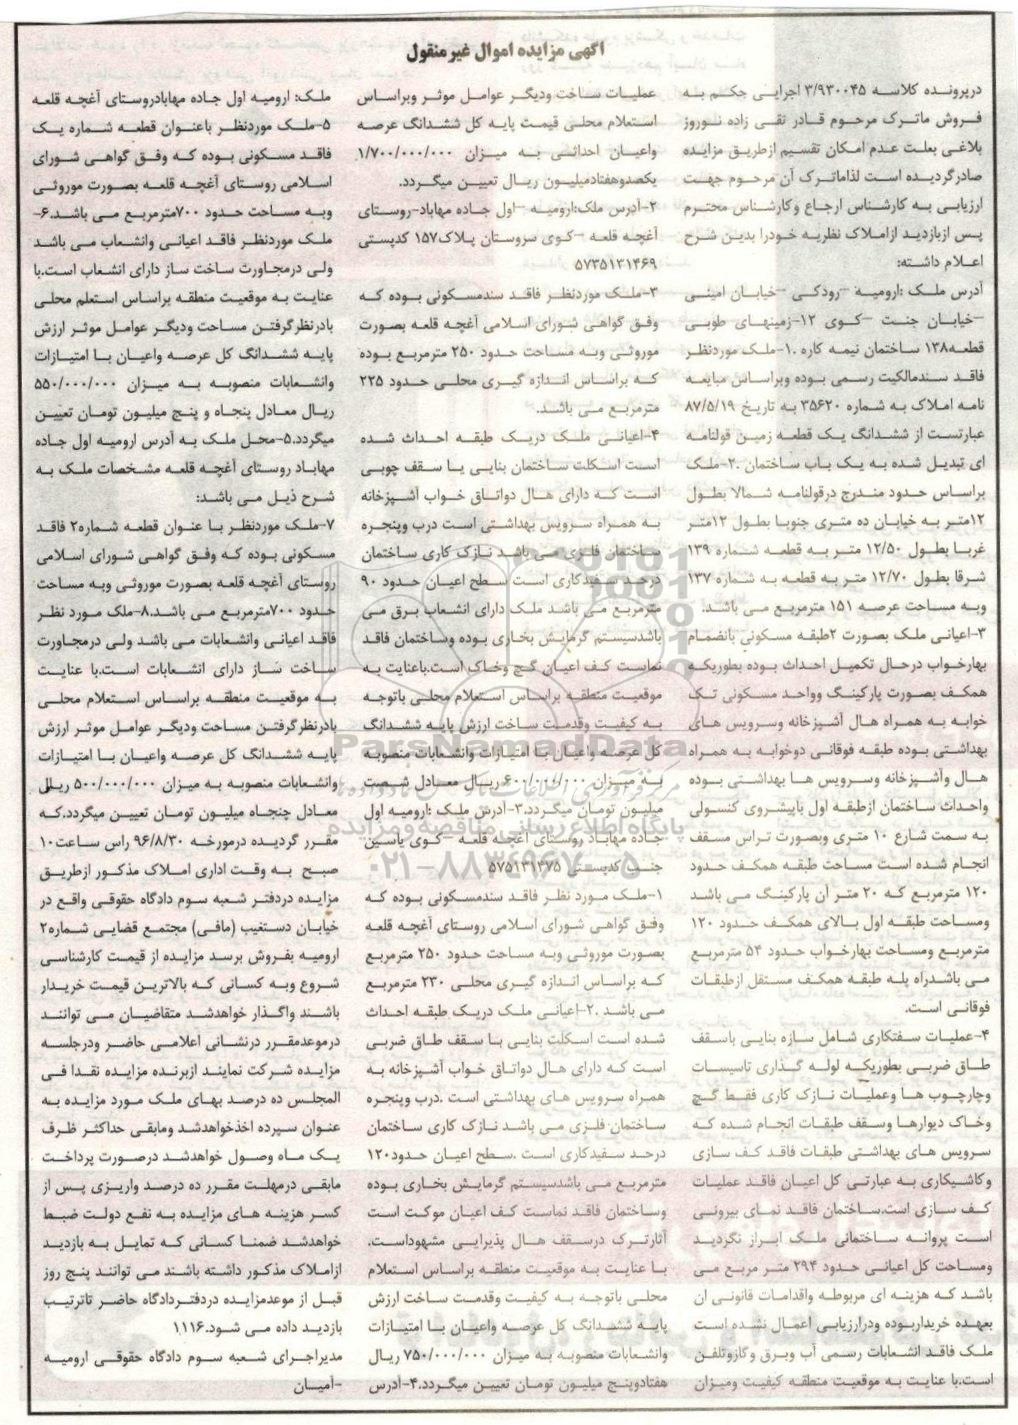 آگهی مزایده اموال غیرمنقول
درپرونده کلاسه ۳/۹۳۰۰۴۵ اجرایی حکم به
فروش ماترک مرحوم قادر تقی زاده نوروز
بلاغی بعلت عدم امکان تقسیم ازطریق مزایده
صادرگردیده است لذاماترک آن مرحوم جهت
ارزیابی به کارشناس ارجاع وکارشناس محترم
پس ازبازدید ازاملاک نظریه خودرا بدین شرح
اعلام داشته:
آدرس ملک :ارومیه –رودکی –خیابان امینی
–خیابان جنت –کوی ۱۲-زمینهای طوبی
قطعه۱۳۸ ساختمان نیمه کاره .۱-ملک موردنظر
فاقد سندمالکیت رسمی بوده وبراساس مبایعه
نامه املاک به شماره ۳۵۶۲۰ به تاریخ ۸۷/۵/۱۹
عبارتست از ششدانگ یک قطعه زمین قولنامه
ای تبدیل شده به یک باب ساختمان .۲-ملک
براساس حدود مندرج درقولنامه شمالا بطول
۱۲متر به خیابان ده متری جنوبا بطول ۱۲متر
غربا بطول ۱۲/۵۰ متر به قطعه شماره ۱۳۹
شرقا بطول ۱۲/۷۰ متر به قطعه به شماره ۱۳۷
وبه مساحت عرصه ۱۵۱ مترمربع می باشد.
۳-اعیانی ملک بصورت ۲طبقه مسکونی بانضمام
بهارخواب درحال تکمیل احداث بوده بطوریکه
همکف بصورت پارکینگ وواحد مسکونی تک
خوابه به همراه هال آشپزخانه وسرویس های
بهداشتی بوده طبقه فوقانی دوخوابه به همراه
هال وآشپزخانه وسرویس ها بهداشتی بوده
واحداث ساختمان ازطبقه اول باپیشروی کنسولی
به سمت شارع ۱۰ متری وبصورت تراس مسقف
انجام شده است مساحت طبقه همکف حدود
۱۲۰ مترمربع که ۲۰ متر آن پارکینگ می باشد
ومساحت طبقه اول بالای همکف حدود ۱۲۰
مترمربع ومساحت بهارخواب حدود ۵۴ مترمربع
می باشدراه پله طبقه همکف مستقل ازطبقات
فوقانی است.
۴-عملیات سفتکاری شامل سازه بنایی باسقف
طاق ضربی بطوریکه لوله گذاری تاسیسات
وچارچوب ها وعملیات نازک کاری فقط گچ
وخاک دیوارها وسقف طبقات انجام شده که
سرویس های بهداشتی طبقات فاقد کف سازی
وکاشیکاری به عبارتی کل اعیان فاقد عملیات
کف سازی است.ساختمان فاقد نمای بیرونی
است پروانه ساختمانی ملک ابراز نگردید
ومساحت کل اعیانی حدود ۲۹۴ متر مربع می
باشد که هزینه ای مربوطه واقدامات قانونی ان
بعهده خریداربوده ودرارزیابی اعمال نشده است
ملک فاقد انشعابات رسمی آب وبرق وگازوتلفن
است.با عنایت به موقعیت منطقه کیفیت ومیزان
عملیات ساخت ودیگر عوامل موثر وبراساس
استعلام محلی قیمت پایه کل ششدانگ عرصه
واعیان احداثی به میزان ۱/۷۰۰/۰۰۰/۰۰۰
یکصدوهفتادمیلیون ریال تعیین میگردد.
۲-آدرس ملک:ارومیه –اول جاده مهاباد-روستای
آغچه قلعه –کوی سروستان پلاک۱۵۷ کدپستی
۵۷۳۵۱۳۱۴۶۹
۳-ملک موردنظر فاقد سندمسکونی بوده که
وفق گواهی شورای اسلامی آغچه قلعه بصورت
موروثی وبه مساحت حدود ۲۵۰ مترمربع بوده
که براساس اندازه گیری محلی حدود ۲۲۵
مترمربع می باشد.
۴-اعیانی ملک دریک طبقه احداث شده
است اسکلت ساختمان بنایی با سقف چوبی
است که دارای هال دواتاق خواب آشپزخانه
به همراه سرویس بهداشتی است درب وپنجره
ساختمان فلزی می باشد نازک کاری ساختمان
درحد سفیدکاری است سطح اعیان حدود ۹۰
مترمربع می باشد ملک دارای انشعاب برق می
باشدسیستم گرمایش بخاری بوده وساختمان فاقد
نماست کف اعیان گچ وخاک است.باعنایت به
موقعیت منطقه براساس استعلام محلی باتوجه
به کیفیت وقدمت ساخت ارزش پایه ششدانگ
کل عرصه واعیان با امتیازات وانشعابات منصوبه
به میزان ۶۰۰/۰۰۰/۰۰۰ ریال معادل شصت
میلیون تومان میگردد.۳-آدرش ملک :ارومیه اول
جاده مهاباد روستای آغچه قلعه –کوی یاسین
جنت کدپستی ۵۷۵۱۳۱۳۷۵
۱-ملک مورد نظر فاقد سندمسکونی بوده که
وفق گواهی شورای اسلامی روستای آغچه قلعه
بصورت موروثی وبه مساحت حدود ۲۵۰ مترمربع
که براساس اندازه گیری محلی ۲۳۰ مترمربع
می باشد .۲-اعیانی ملک دریک طبقه احداث
شده است اسکلت بنایی با سقف طاق ضربی
است که دارای هال دواتاق خواب آشپزخانه به
همراه سرویس های بهداشتی است .درب وپنجره
ساختمان فلزی می باشد نازک کاری ساختمان
درحد سفیدکاری است .سطح اعیان حدود۱۲۰
مترمربع می باشدسیستم گرمایش بخاری بوده
وساختمان فاقد نماست کف اعیان موکت است
آثارترک درسقف هال پذیرایی مشهوداست.
با عنایت به موقعیت منطقه براساس استعلام
محلی باتوجه به کیفیت وقدمت ساخت ارزش
پایه ششدانگ کل عرصه واعیان با امتیازات
وانشعابات منصوبه به میزان ۷۵۰/۰۰۰/۰۰۰ ریال
هفتادوپنج میلیون تومان تعیین میگردد.۴-آدرس
ملک: ارومیه اول جاده مهابادروستای آغچه قلعه
۵-ملک موردنظر باعنوان قطعه شماره یک
فاقد مسکونی بوده که وفق گواهی شورای
اسلامی روستای آغچه قلعه بصورت موروثی
وبه مساحت حدود ۷۰۰مترمربع می باشد.۶-
ملک موردنظر فاقد اعیانی وانشعاب می باشد
ولی درمجاورت ساخت ساز دارای انشعاب است.با
عنایت به موقعیت منطقه براساس استعلم محلی
بادرنظرگرفتن مساحت ودیگر عوامل موثر ارزش
پایه ششدانگ کل عرصه واعیان با امتیازات
وانشعابات منصوبه به میزان ۵۵۰/۰۰۰/۰۰۰
ریال معادل پنجاه و پنج میلیون تومان تعیین
میگردد.۵-محل ملک به آدرس ارومیه اول جاده
مهاباد روستای آغچه قلعه مشخصات ملک به
شرح ذیل می باشد:
۷-ملک موردنظر با عنوان قطعه شماره۲ فاقد
مسکونی بوده که وفق گواهی شورای اسلامی
روستای آغچه قلعه بصورت موروثی وبه مساحت
حدود ۷۰۰مترمربع می باشد.۸-ملک مورد نظر
فاقد اعیانی وانشعابات می باشد ولی درمجاورت
ساخت ساز دارای انشعابات است.با عنایت
به موقعیت منطقه براساس استعلام محلی
بادرنظرگرفتن مساحت ودیگر عوامل موثر ارزش
پایه ششدانگ کل عرصه واعیان با امتیازات
وانشعابات منصوبه به میزان ۵۰۰/۰۰۰/۰۰۰ ریال
معادل چنجاه میلیون تومان تعیین میگردد.که
مقرر گردیده درمورخه ۹۶/۸/۳۰ راس ساعت۱۰
صبح به وقت اداری املاک مذکور ازطریق
مزایده دردفتر شعبه سوم دادگاه حقوقی واقع در
خیابان دستغیب (مافی) مجتمع قضایی شماره۲
ارومیه بفروش برسد مزایده از قیمت کارشناسی
شروع وبه کسانی که بالاترین قیمت خریدار
باشند واگذار خواهدشد متقاضیان می توانند
درموعدمقرر درنشانی اعلامی حاضر ودرجلسه
مزایده شرکت نمایند ازبرنده مزایده نقدا فی
المجلس ده درصد بهای ملک مورد مزایده به
عنوان سپرده اخذخواهدشد ومابقی حداکثر ظرف
یک ماه وصول خواهدشد درصورت پرداخت
مابقی درمهلت مقرر ده درصد واریزی پس از
کسر هزینه های مزایده به نفع دولت ضبط
خواهدشد ضمنا کسانی که تمایل به بازدید
ازاملاک مذکور داشته باشند می توانند پنج روز
قبل از موعدمزایده دردفتردادگاه حاضر تاترتیب
بازدید داده می شود.۱۱۱۶
مدیراجرای شعبه سوم دادگاه حقوقی ارومیه
-آمیان
ParsNamadData
پایگاه اطلاع رسانی مناقصه و مزایده
۰۲۱-۸۸۳۴۹۶۷۰-۵